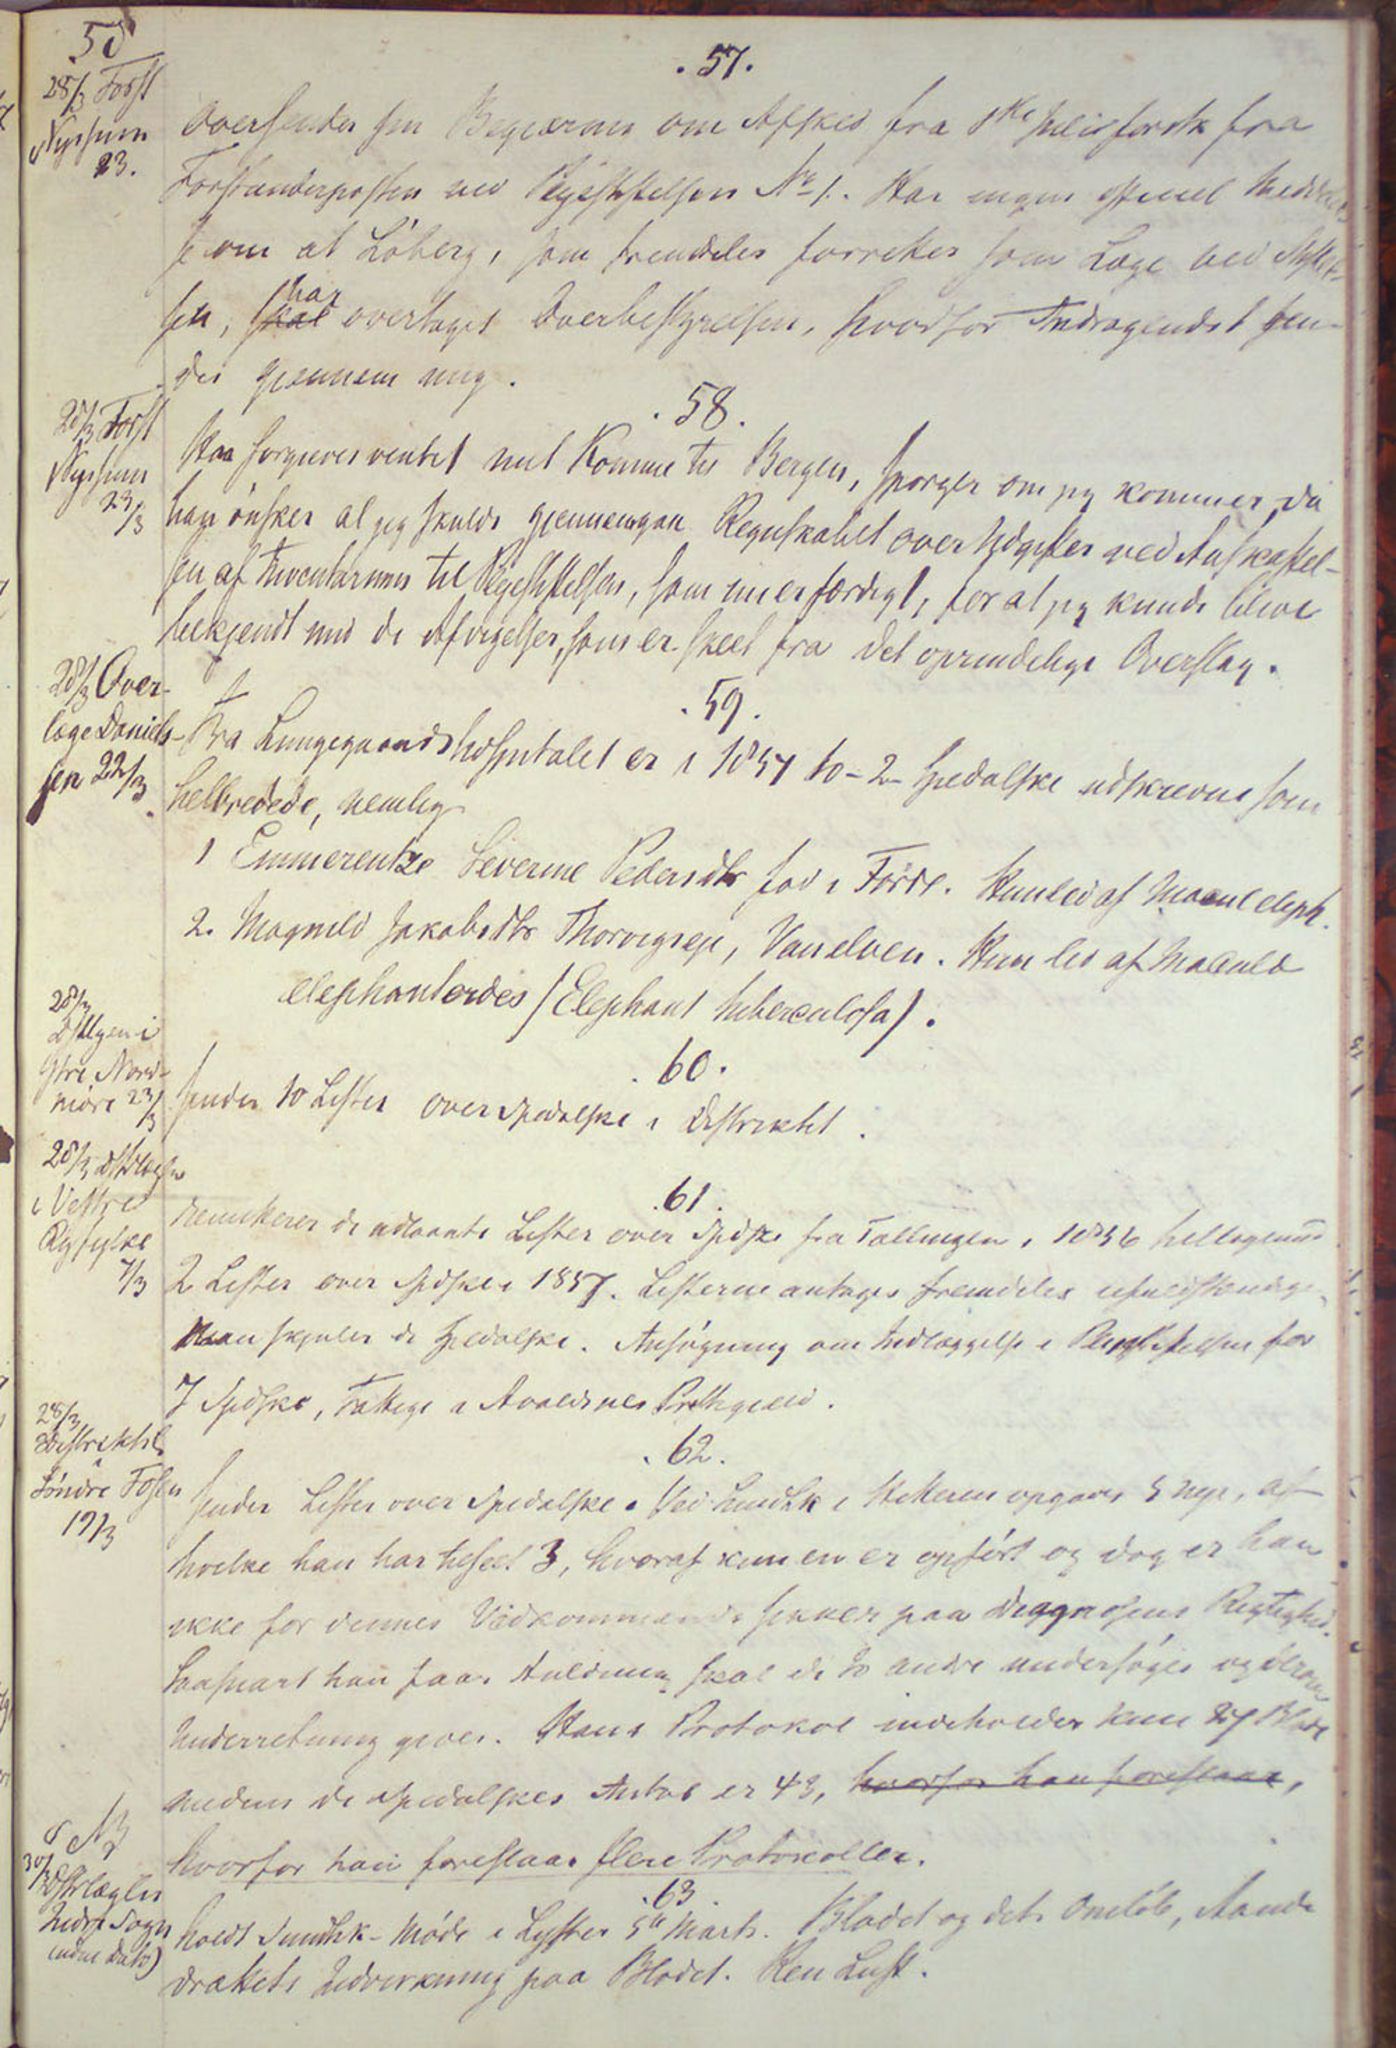 58
.57.
28/3 Forst
Nyssum
23.
Oversender sin Begjæring om Afsked fra 1ste Juli forsk fra
Forstanderposten ved Plejestiftelsen No 1. Har ingen officiel Meddelel-
se om at Löberg, som fremdeles forretter som Læge ved Stiftel-
sen, skal har overtaget Overbestyrelsen, hvorfor Andragendet sen-
des gjennem mig.
.58.
28/3 Forst
Nyssum
23/3
Har forgjeves ventet mit Komme til Bergen, spørger om jeg kommer, da
han önsker at jeg skulde gjennemgaa Regnskabet over Udgifter ved Anskaffel-
sen af Inventarium til Plejestiftelsen, som nu er færdigt, for at jeg kunde blive
bekjendt med de Afvigelser, som er skeet fra det oprindelige Overslag.
.59.
28/3 Over-
læge Daniels-
sen 22/3
Fra Lungegaardshospitalet er i 1857 to - 2 - Spedalske udskrevne som
helbredede, nemlig
1 Emmerentze Severine Pedersdtr fød i Förde. Hun led af Macul eleph.
2. Magnild Jakobsdtr Thorvigseje, Vanelven. Hun led af Macula
elephantoides (Elephant tuberculosa).
.60.
28/3
Dstlgen i
Ytre Nord-
möre 23/3
Sender to Lister over Spedalske i Distriktet.
.61.
28/3 Dstrlægen
i Vestre
Ryfylke
7/3
Remitterer de udlaante Lister over Spdske fra Tællingen i 1856 tilligemed
2 Lister over Spdske i 1857. Listerne antages fremdeles ufuldstændige.
Man skjuler de Spedalske. Ansögning om Indlæggelse i Plejestiftelsen for
7 Spdske, Fattige i Avaldsnes Prstgjeld.
.62.
28/3
Distriktsl
i
Söndre Fosen
19/3
Sender Lister over Spedalske. Ved Sundhk i Hitteren opgaves 5 nye, af
hvilke han har tilseet 3, hvoraf kun en er opfört og dog er han
ikke for dennes Vedkommende sikker paa Diagnosens Rigtighed.
Saasnart han faar Anledning skal de to andre undersöges og derom
Underretning gives. Hans Protokol indeholder kun 27 Blade
medens de Spedalskes Antal er 43, hvorfor han foreslaar,
hvorfor han foreslaar flere Protokoller.
.63.
NB
30/3
Dstrlægen
Indre Sogn
(uden Dato)
holdt Sundhk-Möde i Lyster 5te Marts. Blodet og dets Omlöb, Aande
drættets Indvirkning paa Blodet. Ren Luft.